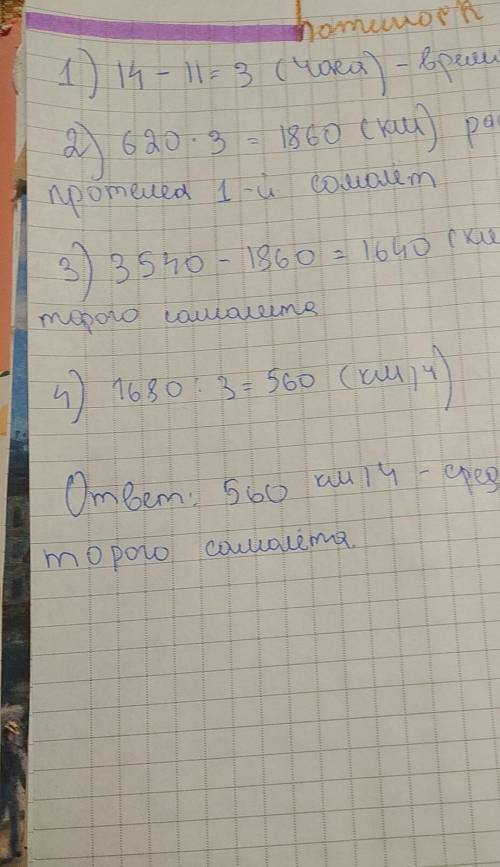 1) 14 - 11 = 3 (часа) - време
2) 620 · 3 = 1860 (км) рас
пролетел 1-й самолёт
3) 3540 - 1860 = 1640 (км
торого самолета
4) 1680 : 3 = 560 (км/ч)
Ответ: 560 км/ч - сред
торого самолёта